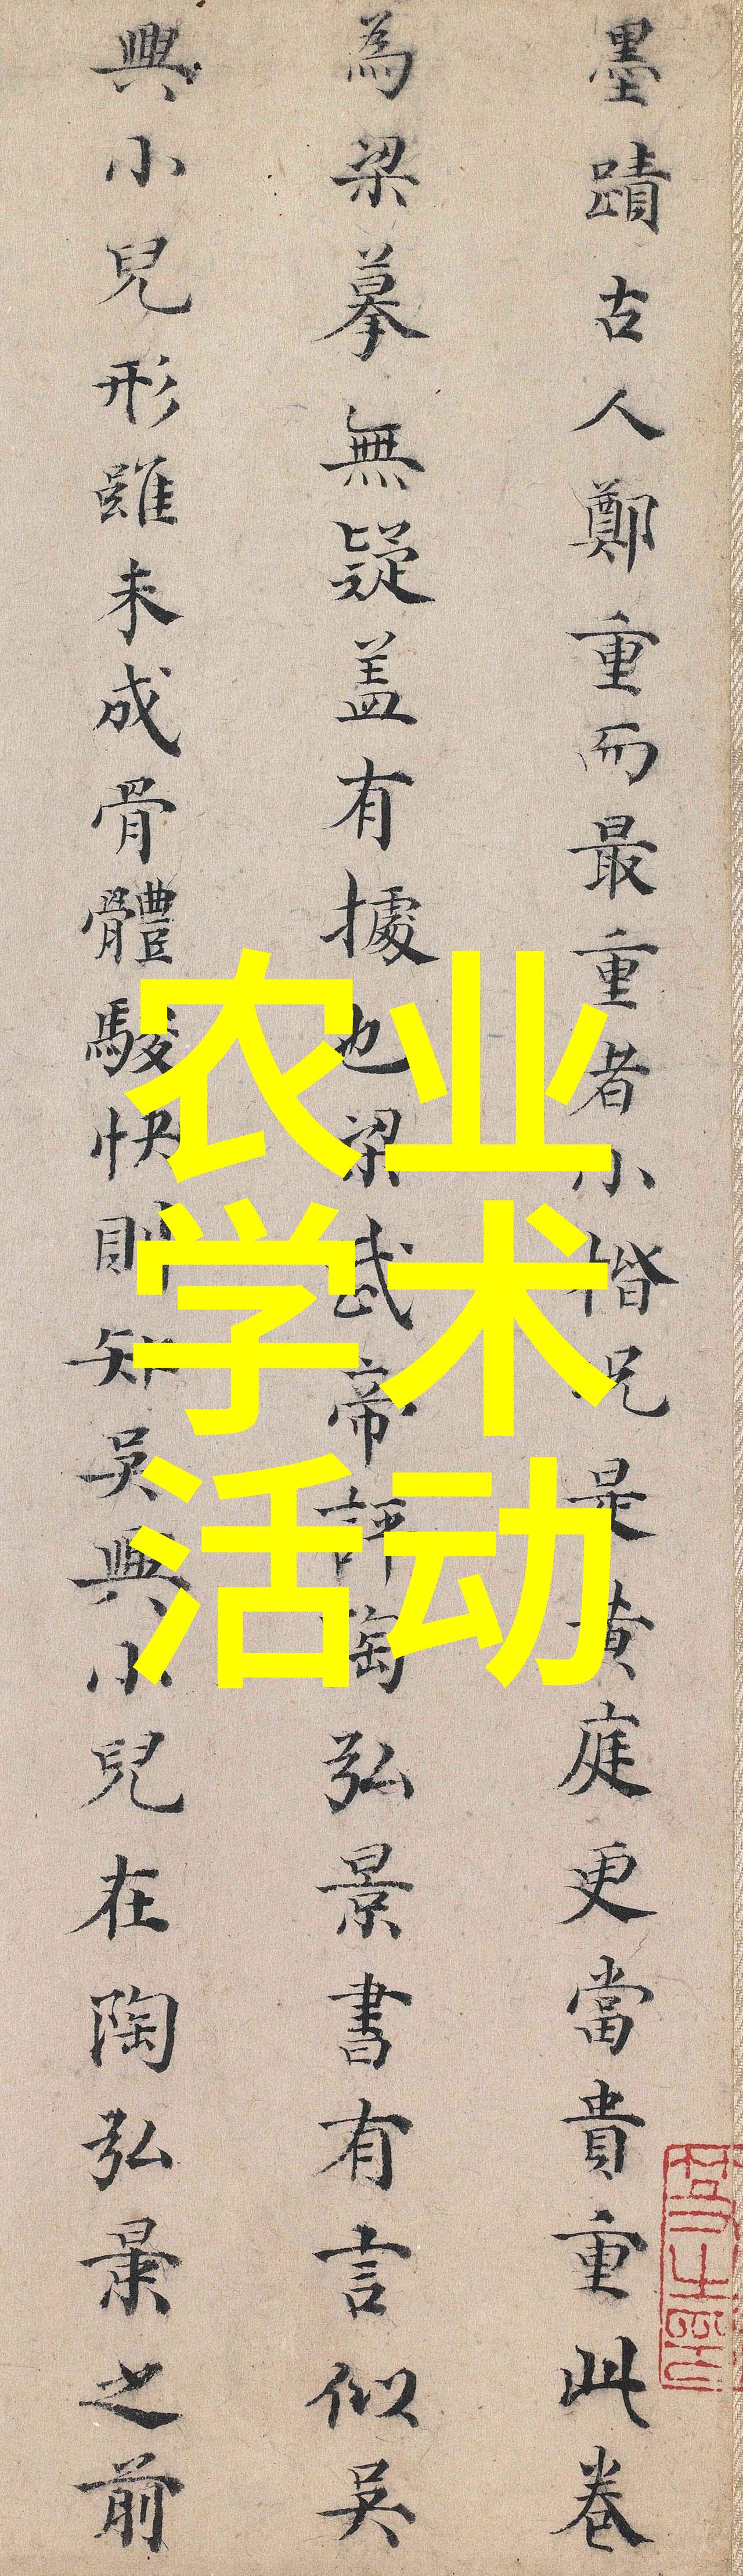 墨蹟古人鄭重而最重者小楷况是黄庭更當貴重此卷
為梁摹無疑盖有據也梁武帝評陶弘景書有言似吴
興小兒形雖未成骨體駿快則知吴興小兒在陶弘景之前
农业
学术
活动